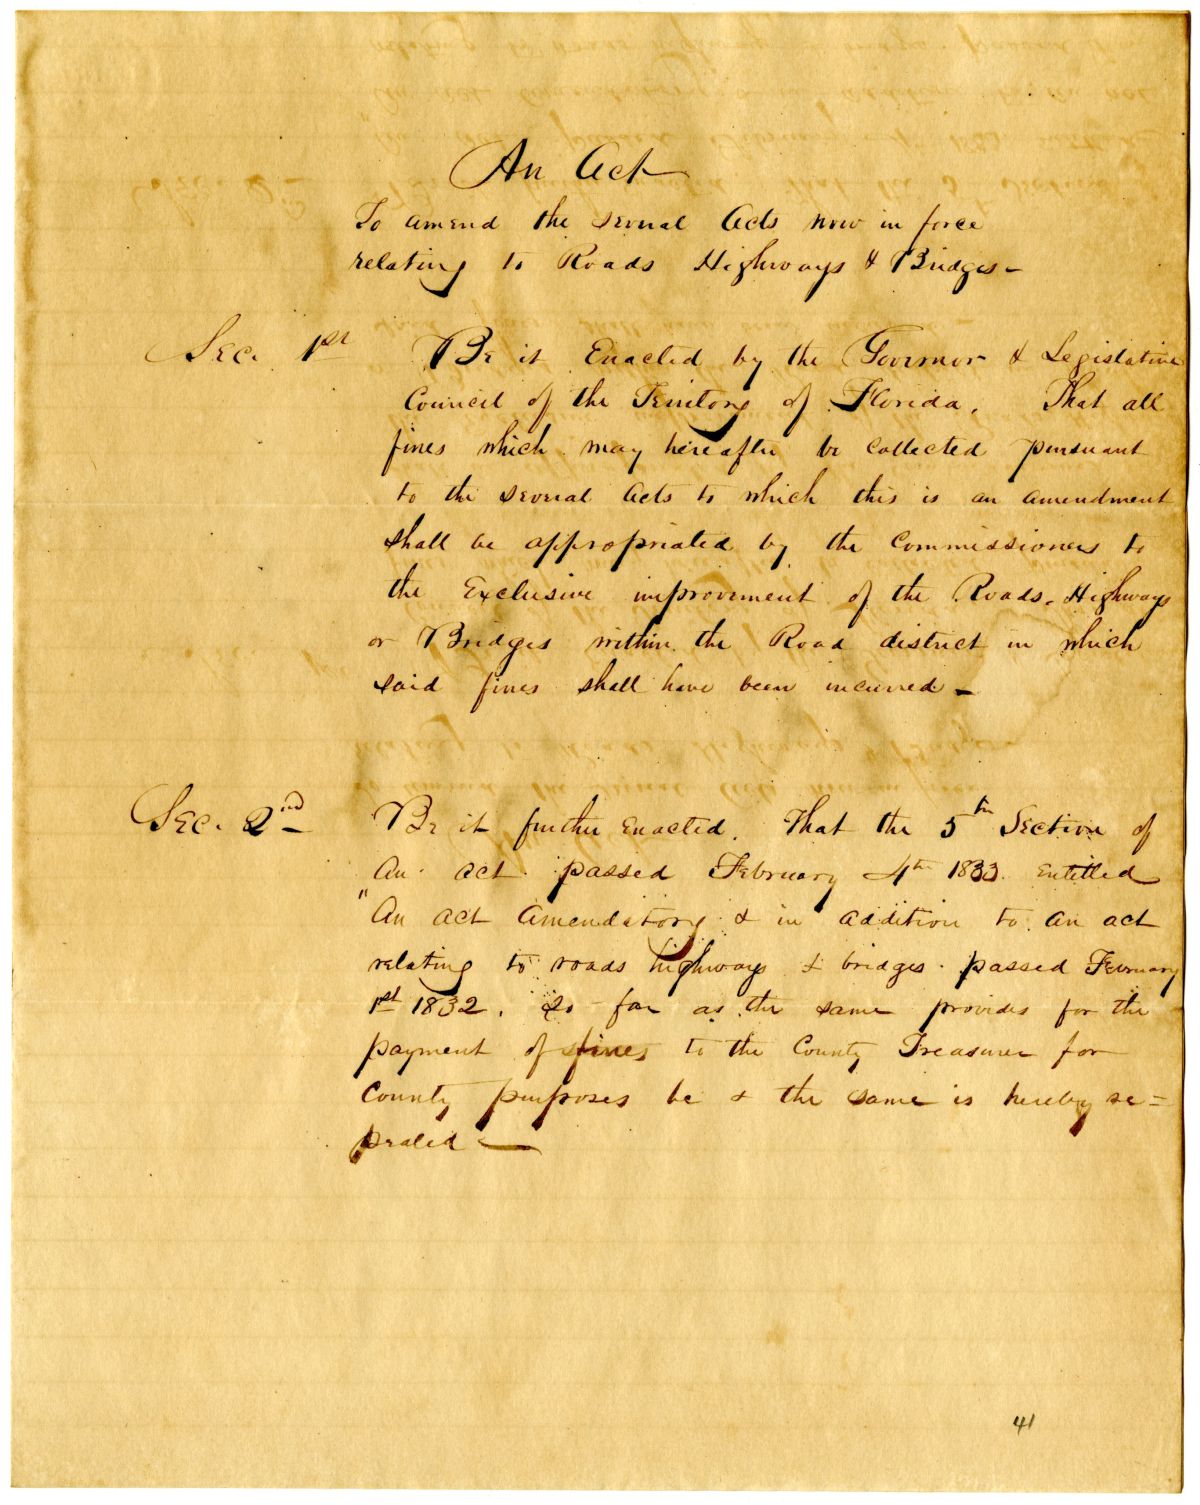 An Act
To amend the several Acts now in force
relating to Roads Highways & Bridges –
Sec. 1st Be it Enacted by the Governor & Legislative
Council of the Territory of Florida, That all
fines which may hereafter be collected pursuant
to the several Acts to which this is an amendment
shall be appropriated by the Commissioners to
the Exclusive improvement of the Roads, Highways
or Bridges within the Road district in which
said fines shall have been incurred –
Sec. 2nd Be it further Enacted. That the 5th Section of
An act passed February 4th 1833 entitled
"An act amendatory & in addition to an act
relating to roads highways & bridges passed February
1st 1832, So far as the same provides for the
payment of fines to the County Treasurer for
County purposes be & the same is hereby re=
pealed –
41